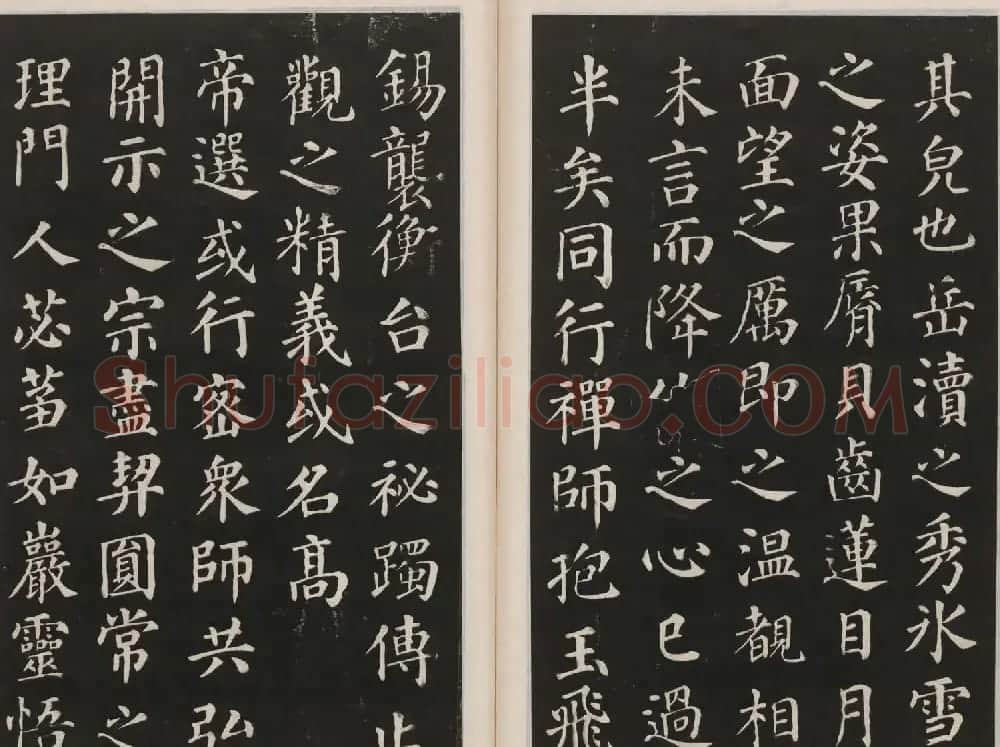 其皃也岳瀆之秀氷雪
之姿果脣貝齒蓮目月
面望之厲即之温覩相
未言而降之心已過
半矣同行禪師抱玉飛
錫襲衡台之祕躅傳止
觀之精義或名高
帝選或行密衆師共弘
開示之宗盡契圓常之
理門人苾蒭如巖靈悟
Shufaziliao.COM